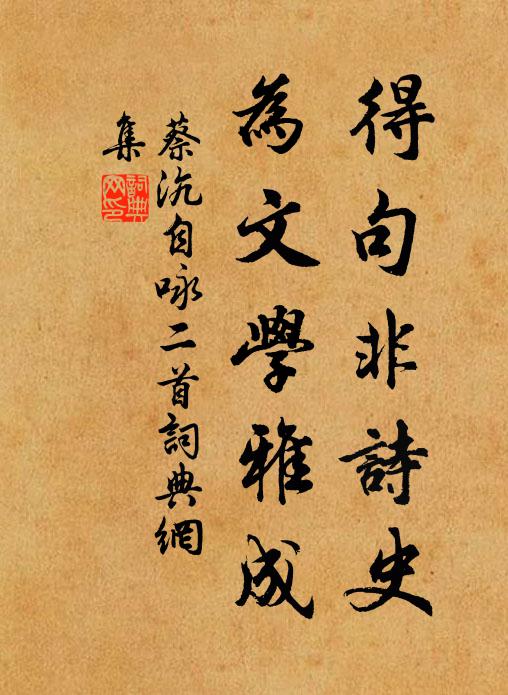 得句非詩史
為文學雅成
蔡沆自咏二首詞典網
集
詞典
网印